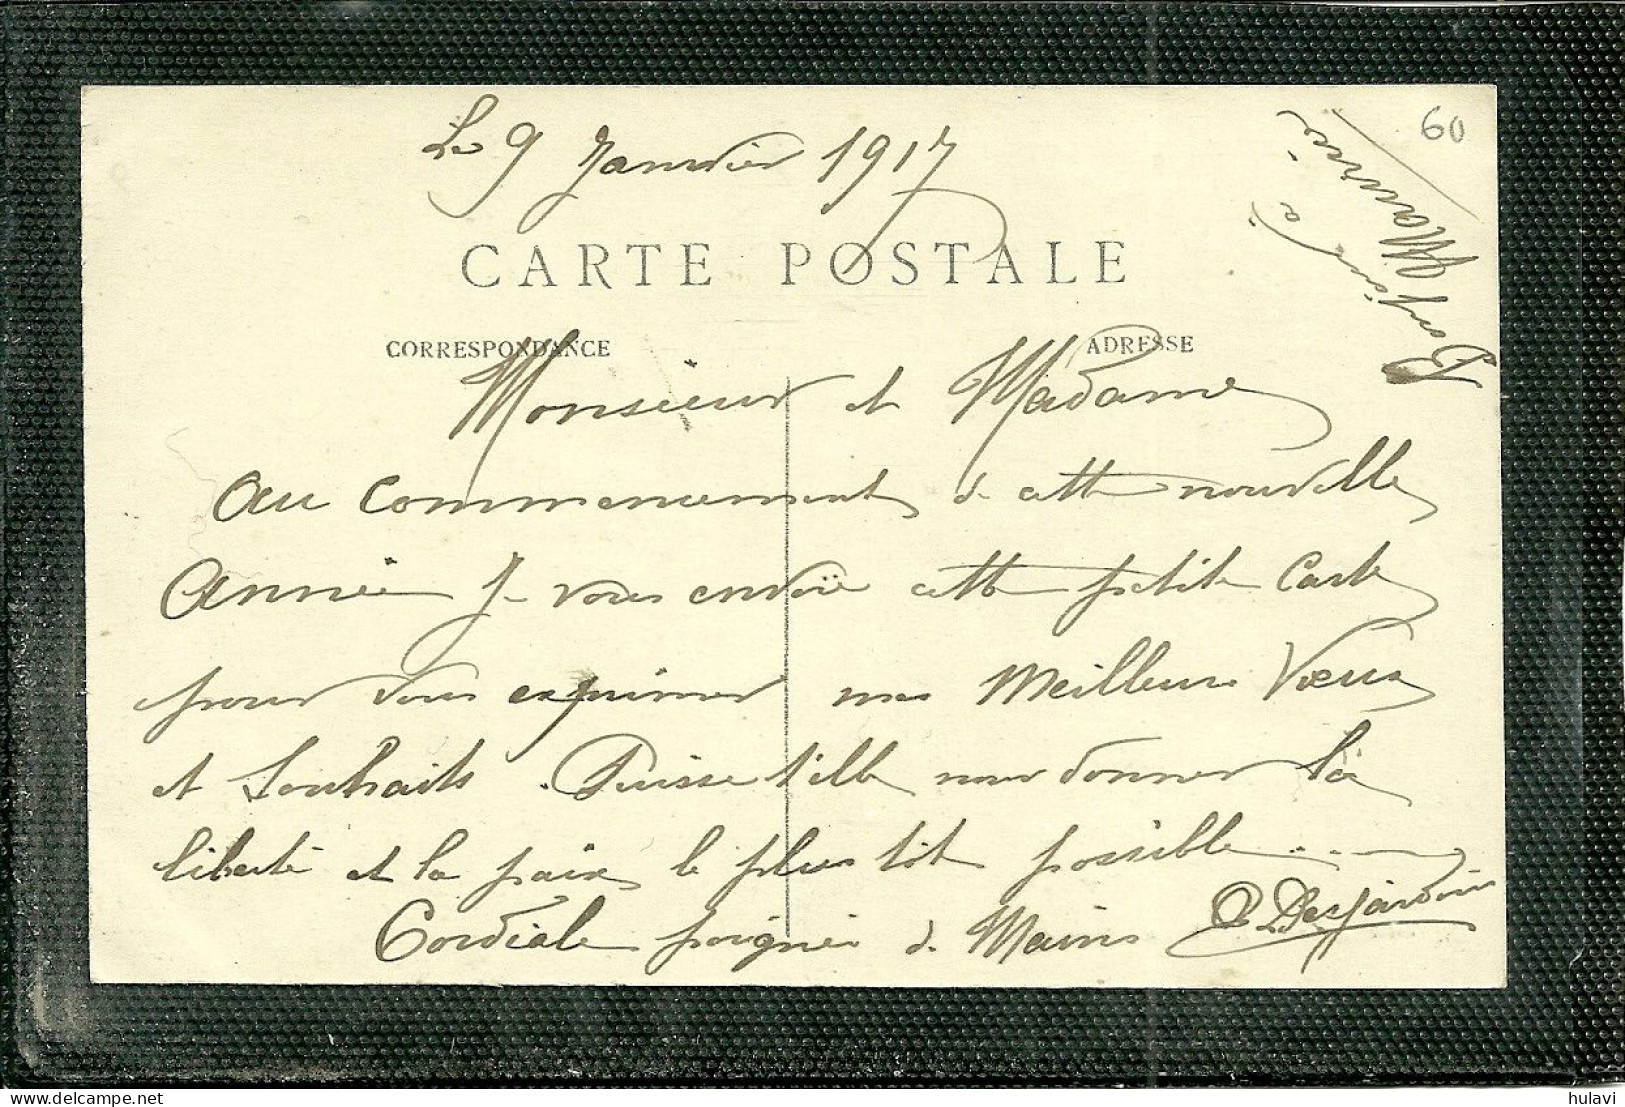 Le 9 Janvier 1917
60
à Maurice
CARTE POSTALE
CORRESPONDANCE
ADRESSE
Monsieur et Madame
Au commencement de cette nouvelle
Année Je vous envoïe cette petite Carte
pour vous exprimer mes Meilleurs Vœux
et Souhaits. Puisse t'elle nous donner la
liberté et la paix le plus tôt possible....
Cordiale poignée de Mains
Desjardins
hulavi